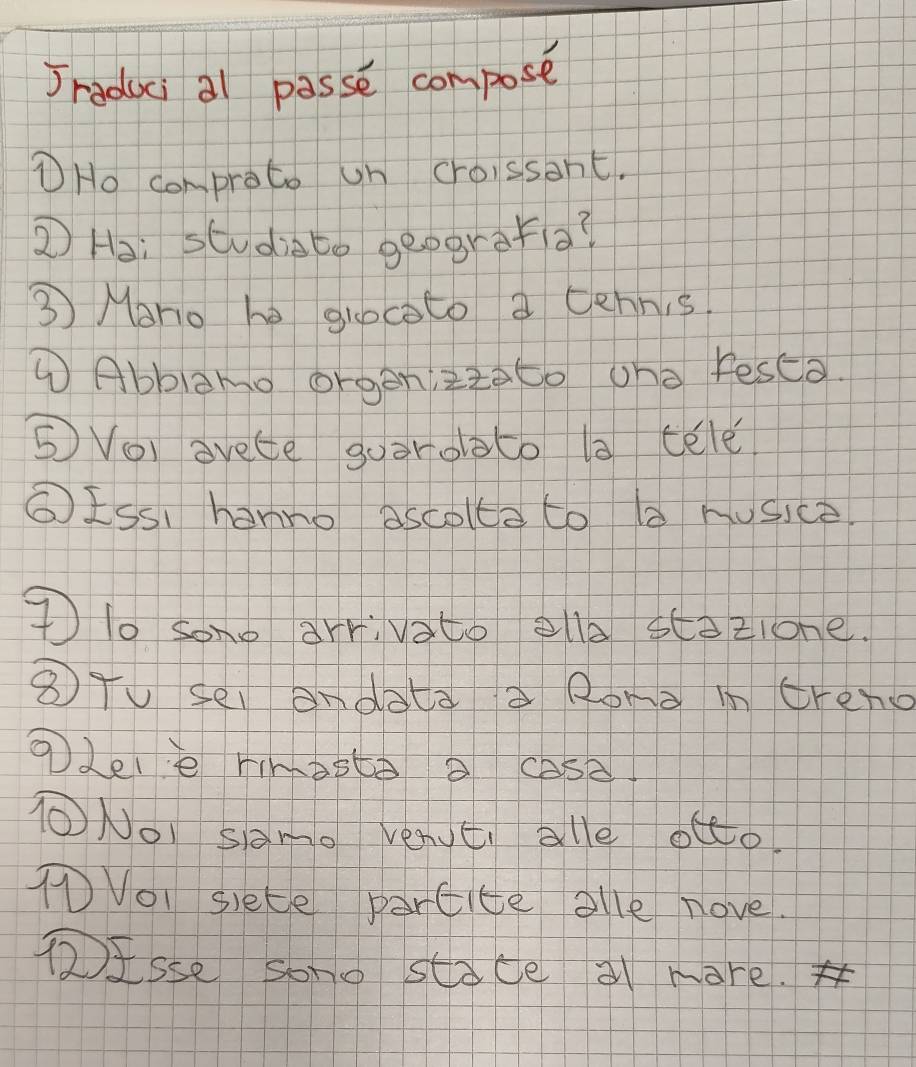 Traduci al passé composé
① Ho comprato un croissant.
② Hai studiato geografia?
③ Mario ha giocato a tennis.
④ Abbiamo organizzato una festa.
⑤ Voi avete guardato la télé.
⑥ Essi hanno ascoltato la musica.
⑦ Io sono arrivato alla stazione.
⑧ Tu sei andata a Roma in treno
⑨ Lei è rimasta a casa.
⑩ Noi siamo venuti alle otto.
⑪ Voi siete partite alle nove.
⑫ Esse sono state al mare. #